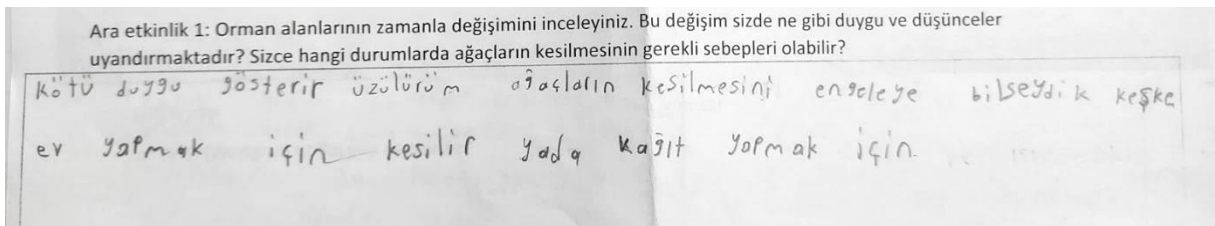 Ara etkinlik 1: Orman alanlarının zamanla değişimini inceleyiniz. Bu değişim sizde ne gibi duygu ve düşünceler
uyandırmaktadır? Sizce hangi durumlarda ağaçların kesilmesinin gerekli sebepleri olabilir?
kötü duygu gösterir üzülürüm ağaçların kesilmesini engeleye bilseydik keşke
ev yapmak için kesilir yada kağıt yapmak için.